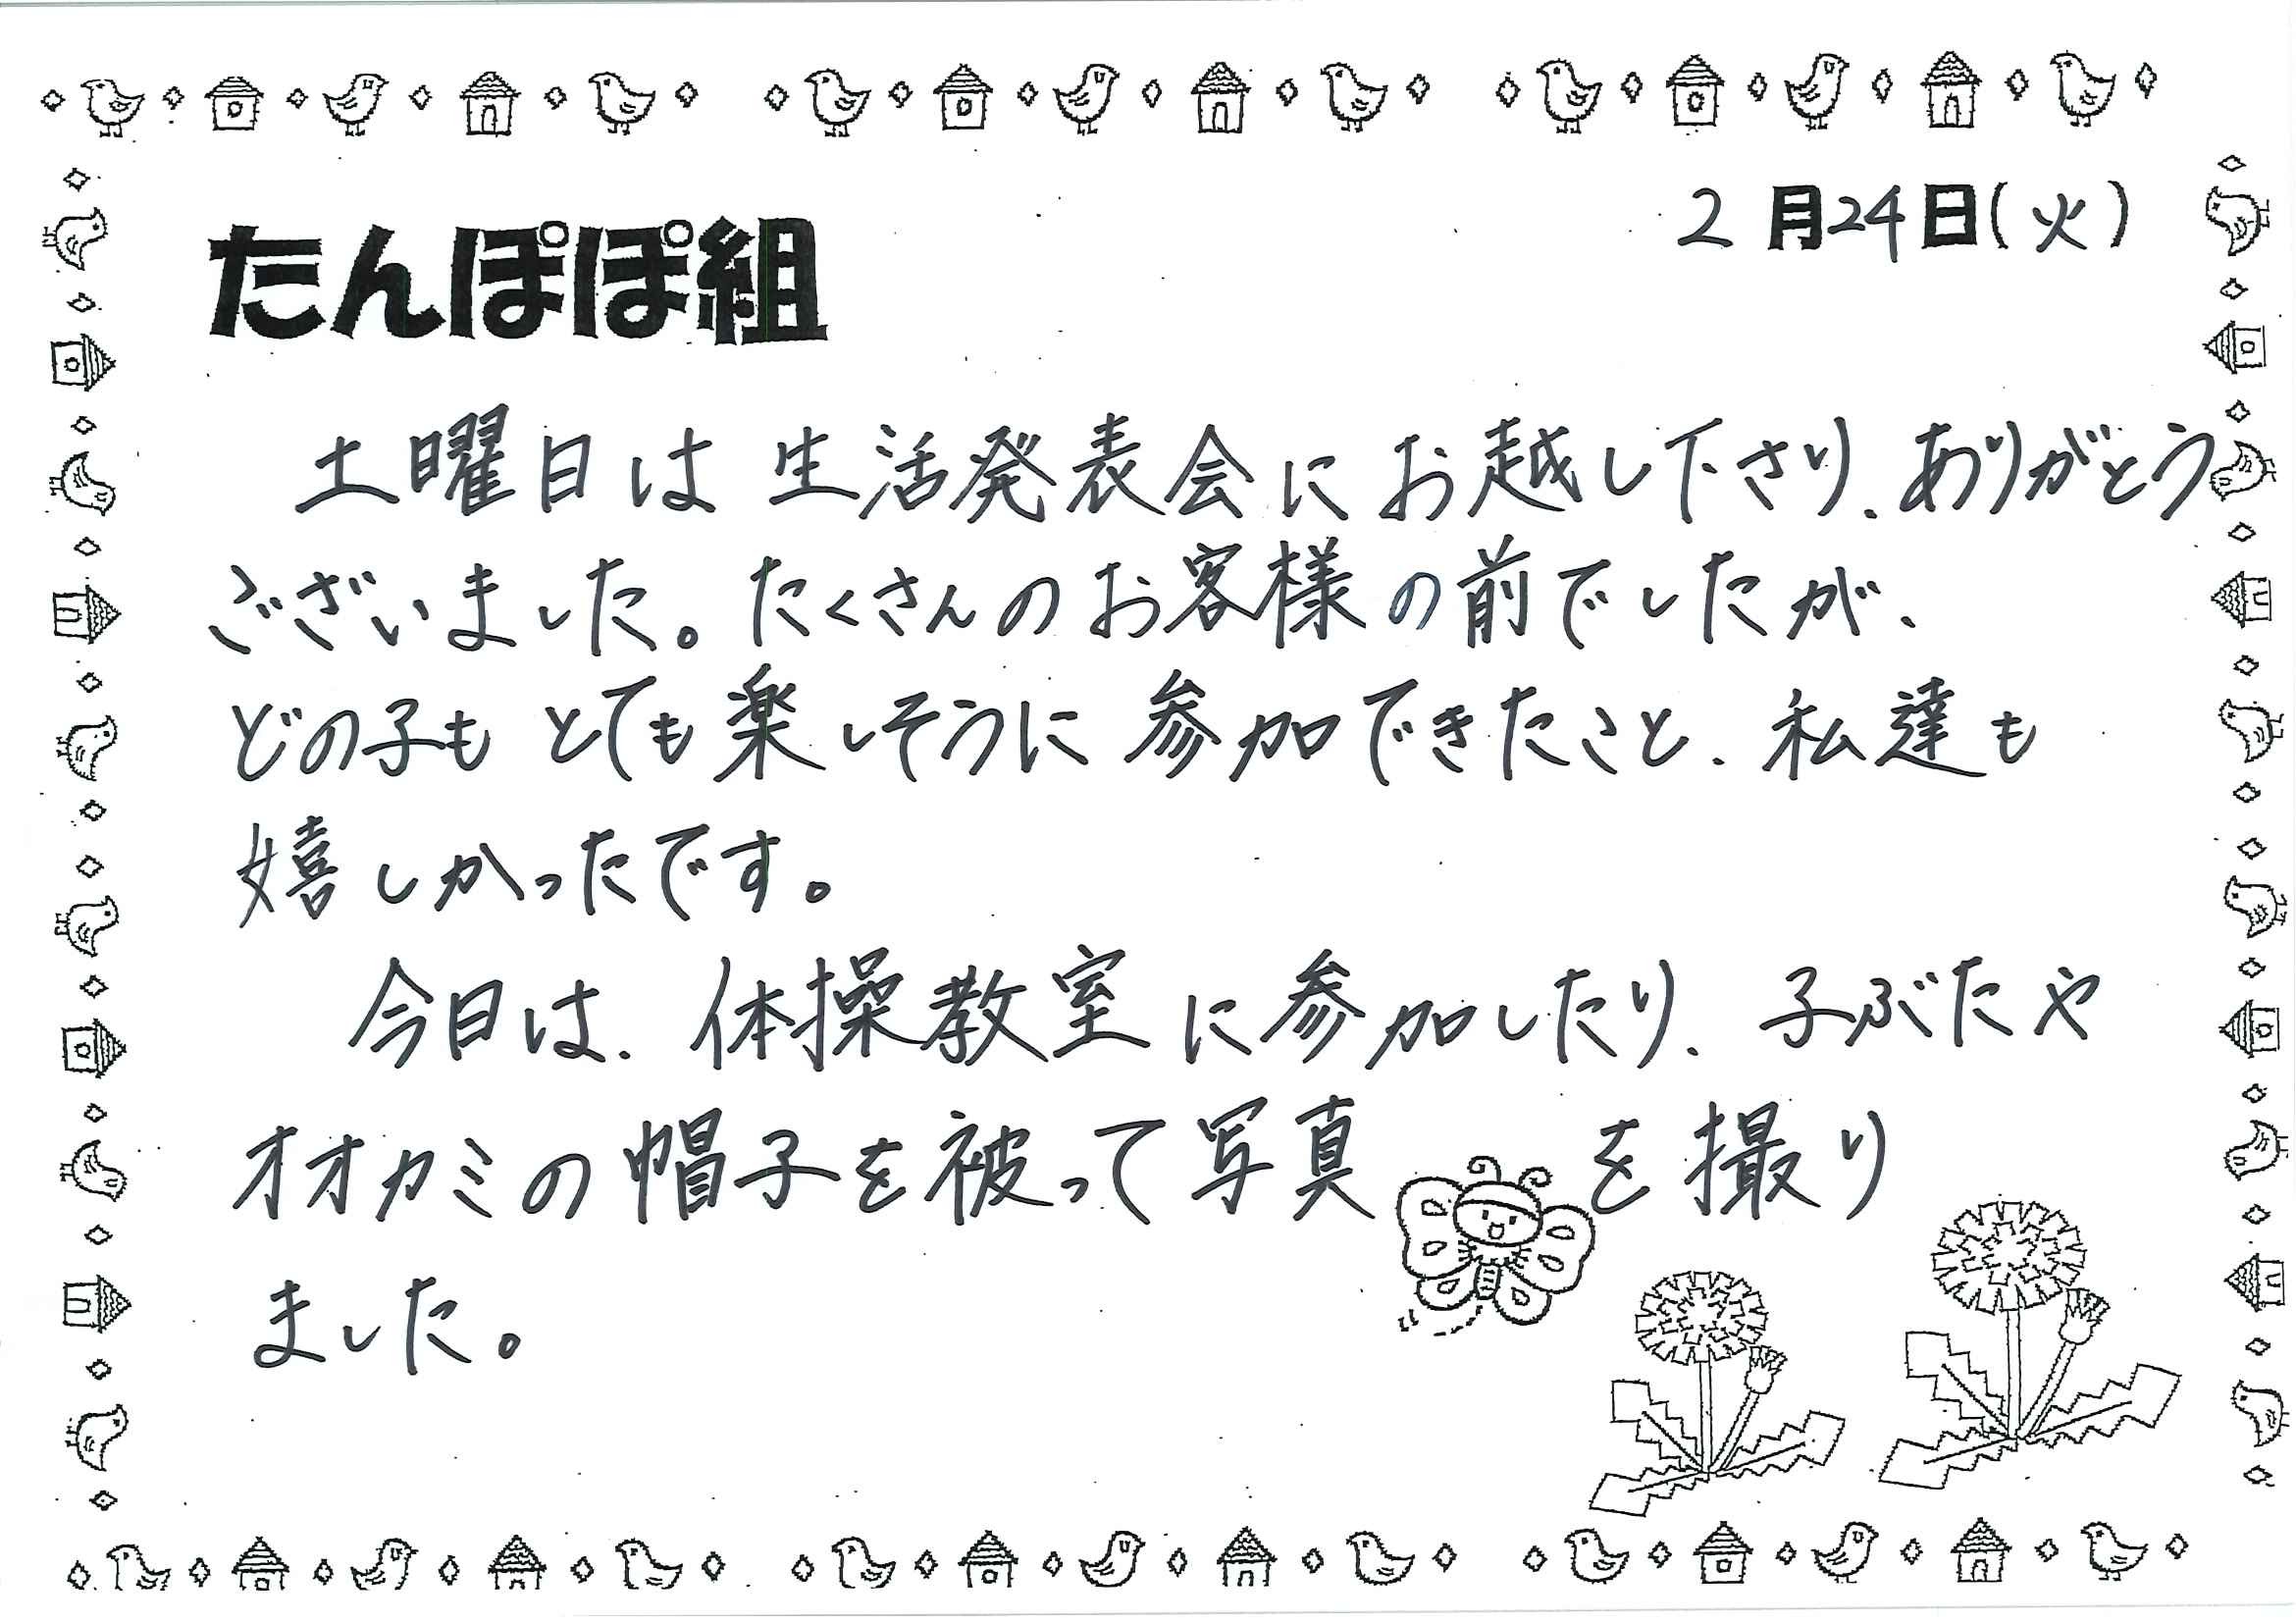 2月24日(火)
たんぽぽ組
土曜日は生活発表会にお越し下さり、ありがとう
ございました。たくさんのお客様の前でしたが、
どの子もとても楽しそうに参加できたこと、私達も
嬉しかったです。
今日は、体操教室に参加したり、子ぶたや
オオカミの帽子を被って写真を撮り
ました。